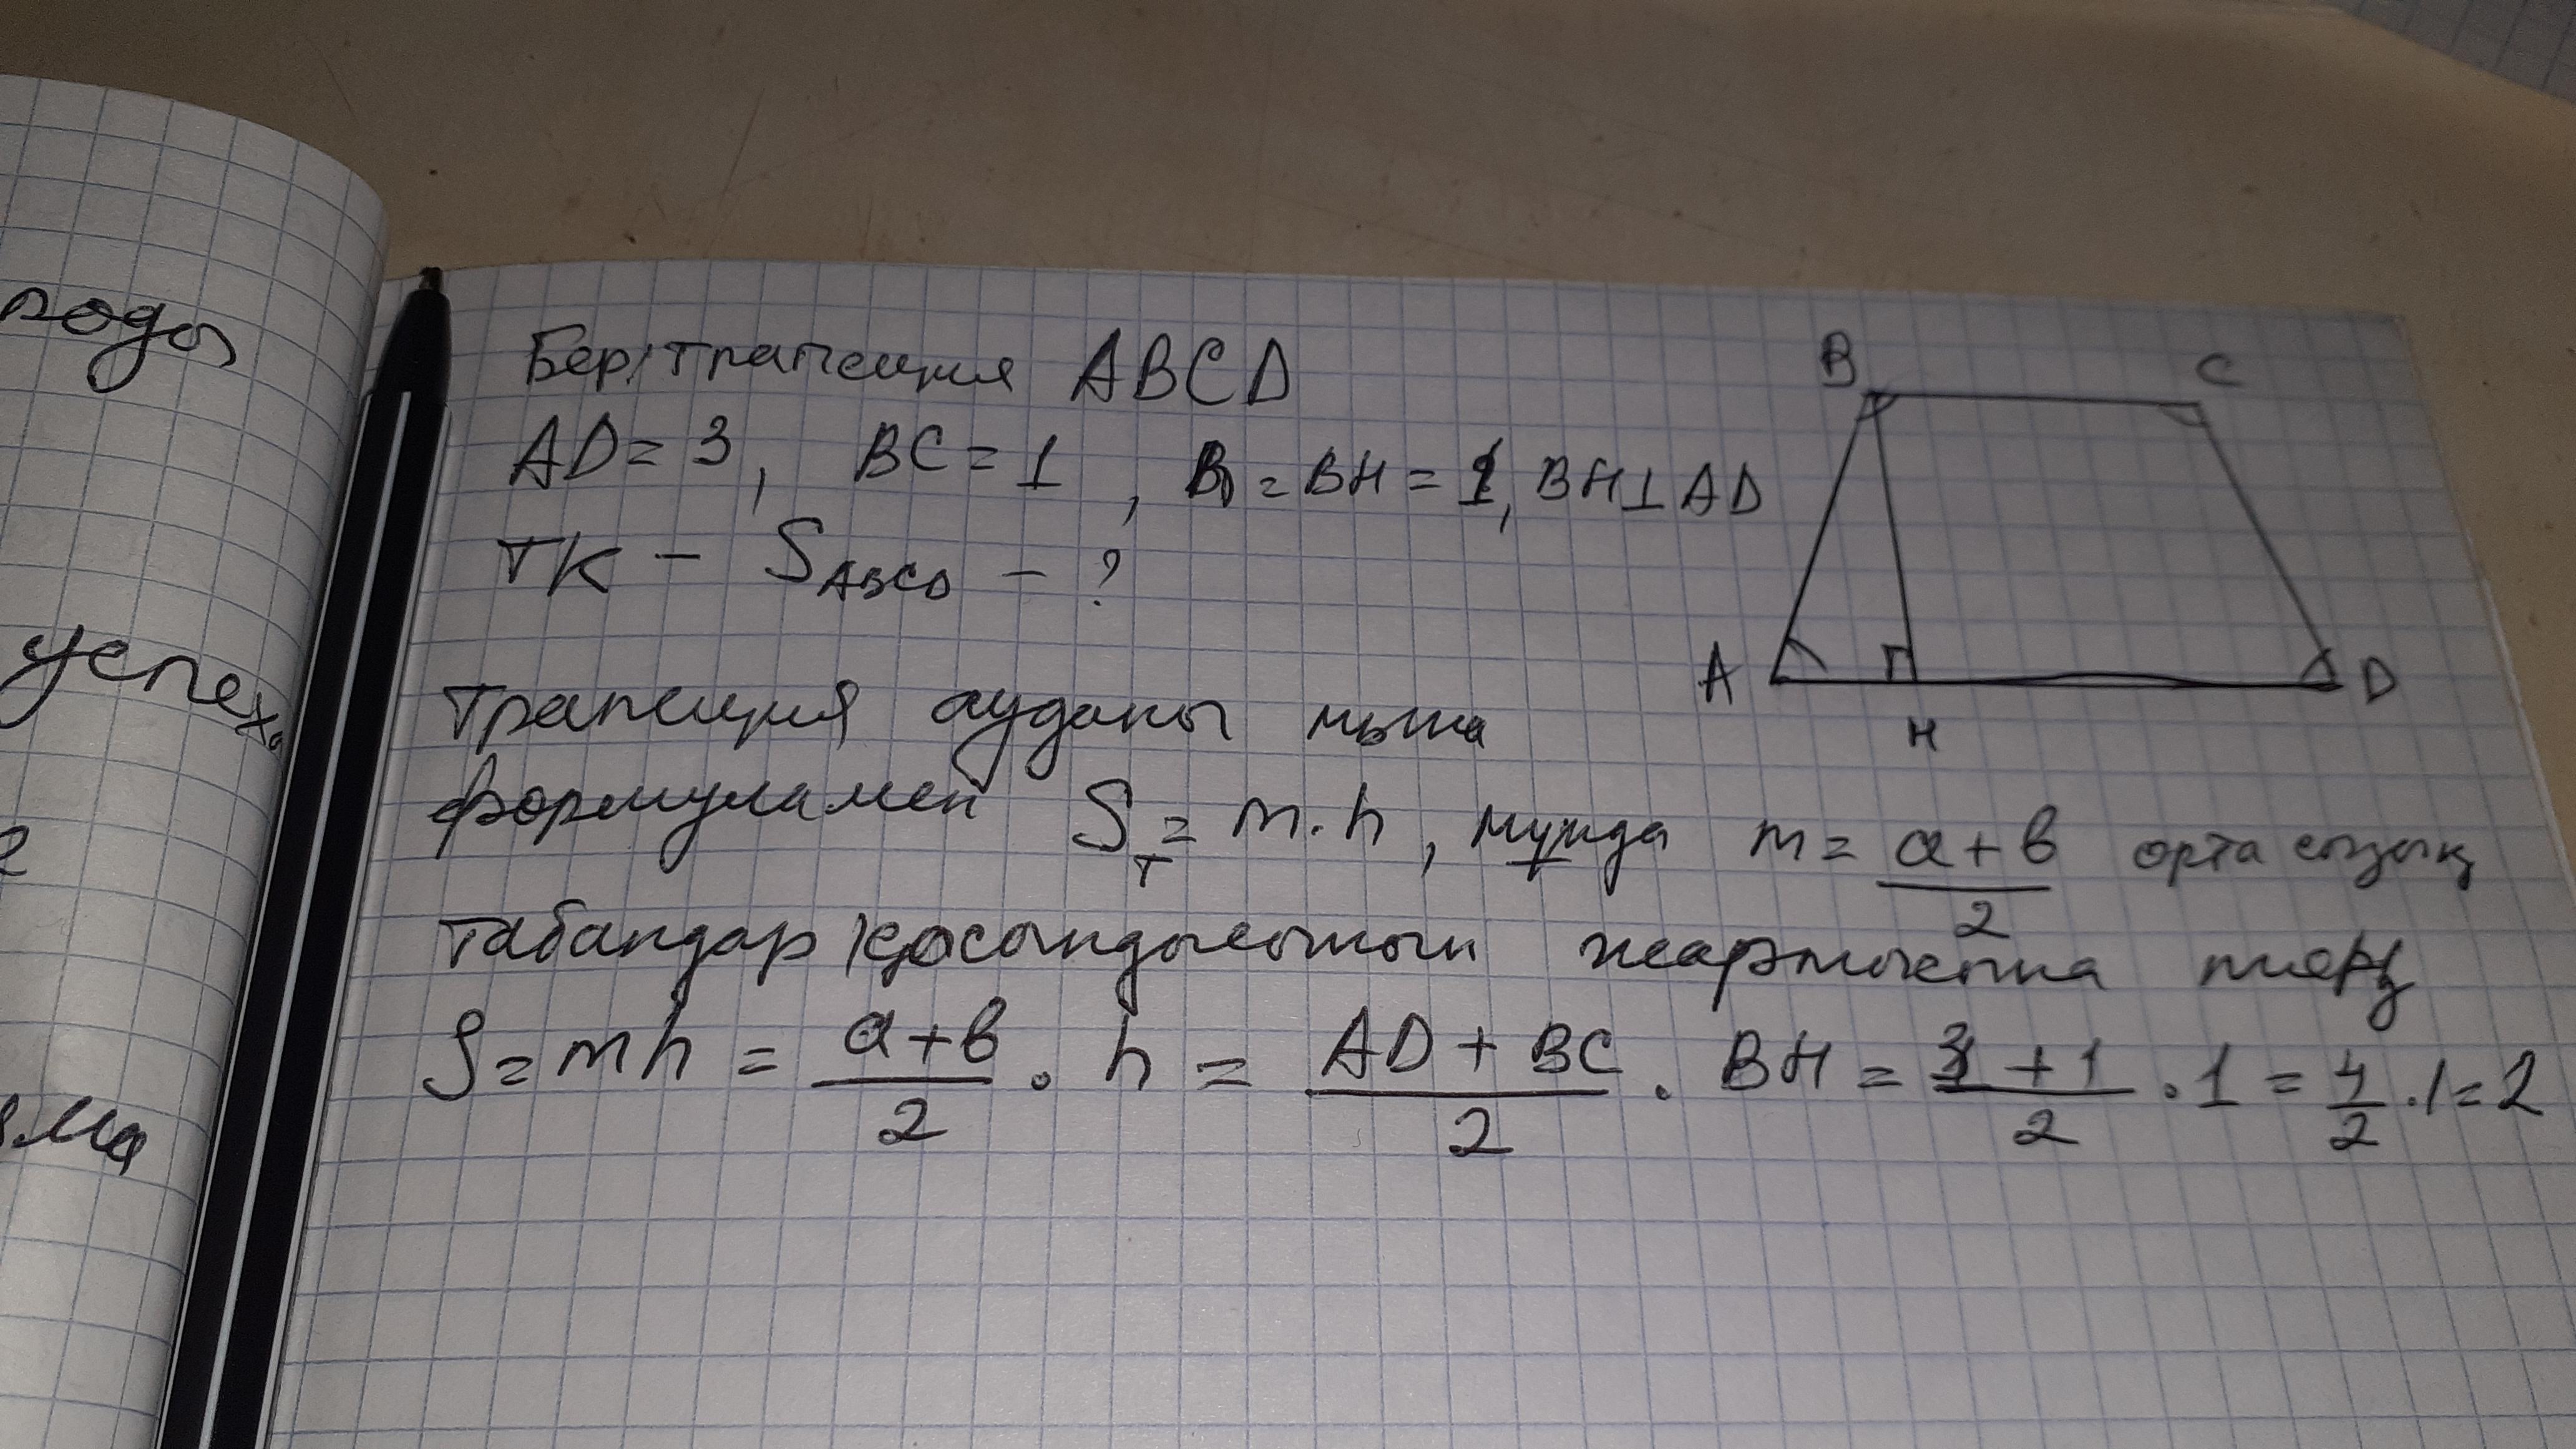 роды
успех
2
ма
Бер: трапеция ABCD
AD = 3, BC = 1, = BH = 1, BH ⊥ AD
ТК - S_ABCD - ?
B
C
A
H
D
трапеция ауданы мына
формуламен S_T = m · h, мұнда m = (a + b)/2 орта сызық
табандар қосындысының жартысына тең
S = mh = (a + b)/2 · h = (AD + BC)/2 · BH = (3 + 1)/2 · 1 = 4/2 · 1 = 2